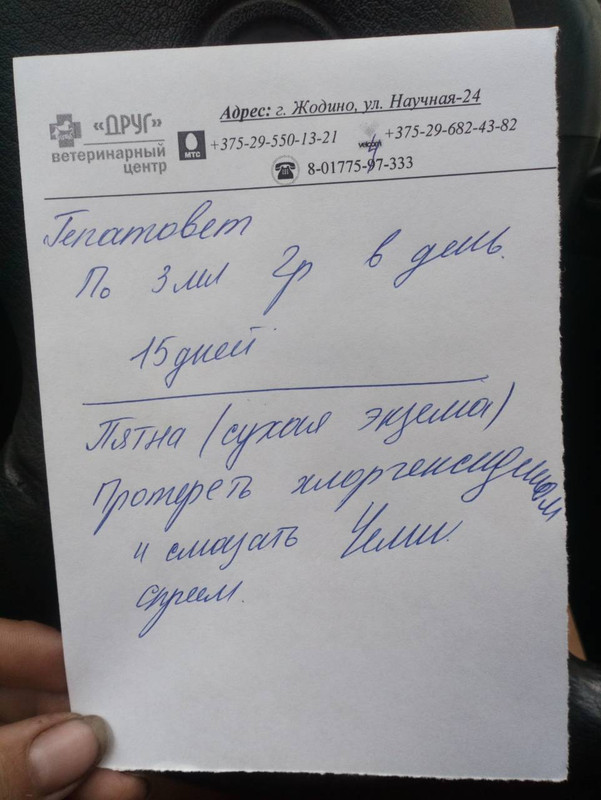 Адрес: г. Жодино, ул. Научная-24
«ДРУГ»
ветеринарный
центр
МТС
+375-29-550-13-21
velcom
+375-29-682-43-82
8-01775-97-333
Гепатовет
По 3 мл 2р в день.
15 дней
Пятна (сухая экзема)
Протереть хлоргексидином
и смазать Чеми
спреем.